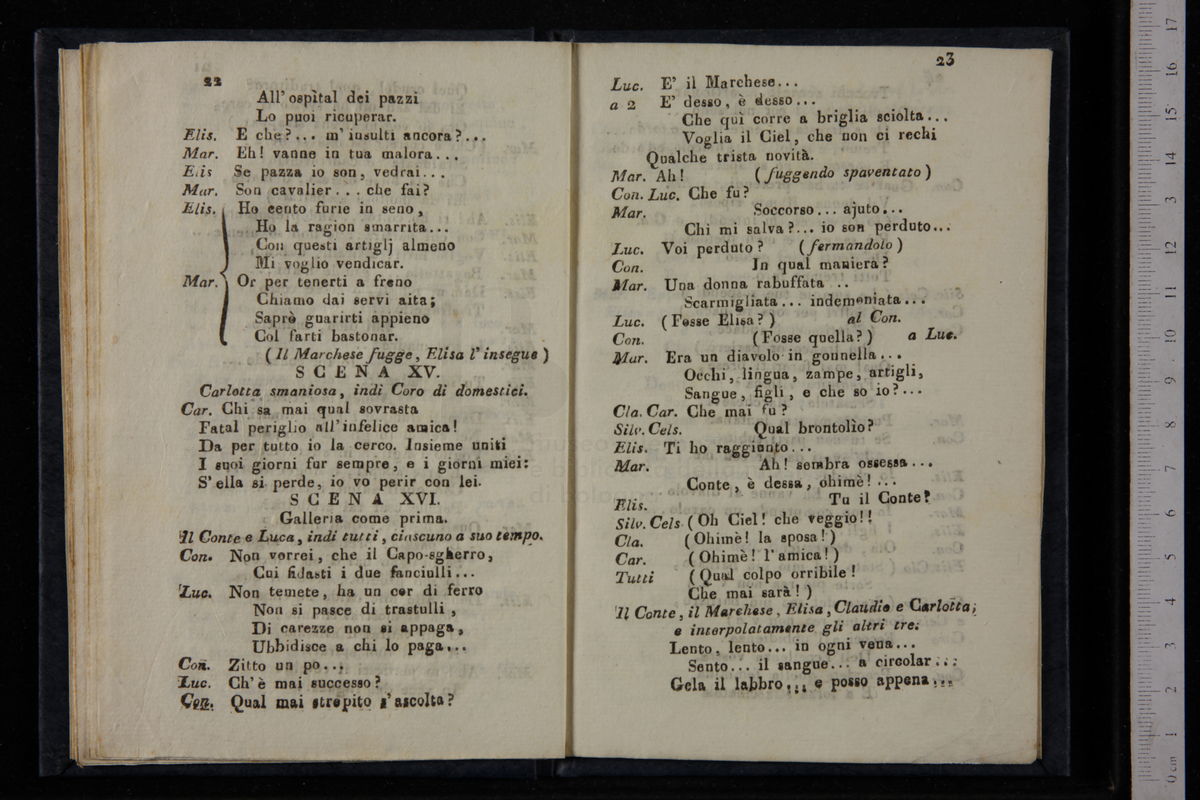 22
All' ospital dei pazzi
Lo puoi ricuperar.
Elis. E che?... m' insulti ancora?...
Mar. Eh! vanne in tua malora...
Elis Se pazza io son, vedrai...
Mar. Son cavalier... che fai?
Elis. Ho cento furie in seno,
Ho la ragion smarrita...
Con questi artiglj almeno
Mi voglio vendicar.
Mar. Or per tenerti a freno
Chiamo dai servi aita;
Saprò guarirti appieno
Col farti bastonar.
(Il Marchese fugge, Elisa l' insegue)
SCENA XV.
Carlotta smaniosa, indi Coro di domestici.
Car. Chi sa mai qual sovrasta
Fatal periglio all' infelice amica!
Da per tutto io la cerco. Insieme uniti
I suoi giorni fur sempre, e i giorni miei:
S' ella si perde, io vo perir con lei.
SCENA XVI.
Galleria come prima.
Il Conte e Luca, indi tutti, ciascuno a suo tempo.
Con. Non vorrei, che il Capo-sgherro,
Cui fidasti i due fanciulli...
Luc. Non temete, ha un cor di ferro
Non si pasce di trastulli,
Di carezze non si appaga,
Ubbidisce a chi lo paga...
Con. Zitto un po...
Luc. Ch' è mai successo?
Con. Qual mai strepito s' ascolta?
23
Luc. E' il Marchese...
a 2 E' desso, è desso...
Che quì corre a briglia sciolta...
Voglia il Ciel, che non ci rechi
Qualche trista novità.
Mar. Ah! (fuggendo spaventato)
Con. Luc. Che fu?
Mar. Soccorso... ajuto...
Chi mi salva?... io son perduto...
Luc. Voi perduto? (fermandolo)
Con. In qual maniera?
Mar. Una donna rabuffata ..
Scarmigliata... indemoniata...
Luc. (Fosse Elisa?) al Con.
Con. (Fosse quella?) a Luc.
Mar. Era un diavolo in gonnella...
Occhi, lingua, zampe, artigli,
Sangue, figli, e che so io?...
Cla. Car. Che mai fu?
Silv. Cels. Qual brontolìo?
Elis. Ti ho raggionto...
Mar. Ah! sembra ossessa...
Conte, è dessa, ohimè!...
Elis. Tu il Conte?
Silv. Cels. (Oh Ciel! che veggio!!
Cla. (Ohimè! la sposa!)
Car. (Ohimè! l' amica!)
Tutti (Qual colpo orribile!
Che mai sarà!)
Il Conte, il Marchese, Elisa, Claudio e Carlotta;
e interpolatamente gli altri tre.
Lento, lento... in ogni vena...
Sento... il sangue... a circolar...
Gela il labbro... e posso appena...
0 cm 1 2 3 4 5 6 7 8 9 10 11 12 13 14 15 16 17